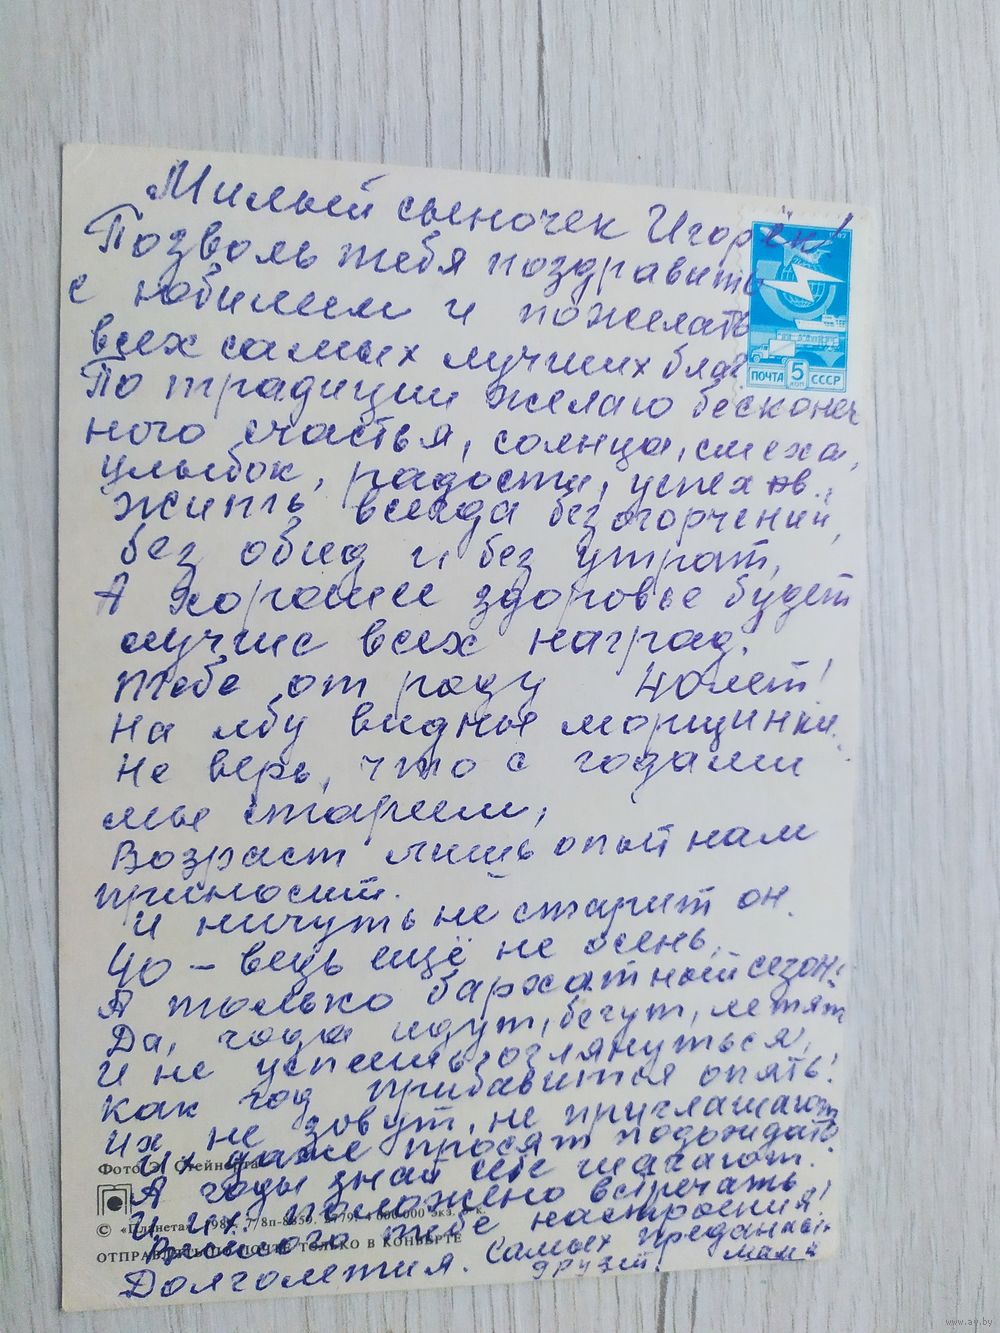 Милый сыночек Игорек!
Позволь тебя поздравить
с юбилеем и пожелать
всех самых лучших благ
По традиции желаю бесконеч
ного счастья, солнца, смеха,
улыбок, радости, успехов.,
жить всегда без огорчений,
без обид и без утрат,
А хорошее здоровье будет
лучше всех наград.
Тебе от роду 40 лет!
На лбу видны морщинки.
Не верь, что с годами
мы старим,
Возраст лишь опыт нам
приносит.
И ничуть не старит он.
40 – ведь ещё не осень,
А только бархатный сезон!
Да, года идут, бегут, летят
И не успеешь оглянуться,
как год прибавится опять!
Их не зовут, не приглашают
Их даже просят подождать
А годы знай себе шагают.
И их положено встречать
тебе настроения!
Долголетия. Самых преданных
друзей! мама
ПОЧТА 5 КОП СССР
Фото Э. Стейнерта
© «Планета»,
ОТПРАВЛЯТЬ ПО ПОЧТЕ ТОЛЬКО В КОНВЕРТЕ
www.ay.by